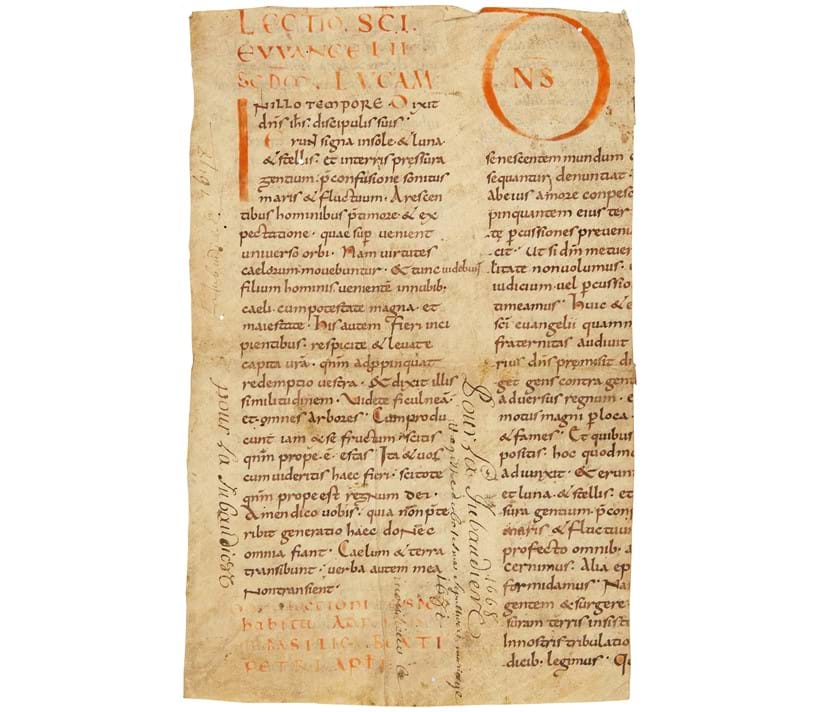 LECTIO. SCI.
EVVANGELII
SCDM. LVCAM
INILLO TEMPORE. Dixit
dns ihs. discipulis suis.
erunt signa insole. & luna.
& stellis. et interris pressura
gentium. p̄ confusione sonitus
maris & fluctuum. Arescen
tibus hominibus p̄timore. & ex
pectatione. quae sup̄ venient
universo orbi. Nam virtutes
caelorum movebuntur. & tunc videbunt
filium hominis. venientē innubib;
caeli. cum potestate magna. et
maiestate. His autem fieri inci
pientibus. respicite & levate
capita vr̄a. qnm̄ adp̄pinquat
redemptio vestra. & dixit illis
similitudinem. Videte ficulneā.
et. omnes arbores. Cum produ
cunt iam & se fructum. scitis
qnm̄ prope. ē. estas. Ita & vos
cum videritis haec fieri. scitote
qnm̄ prope est regnum dei.
Amen dico vobis. quia non p̄te
ribit generatio haec donec
omnia fiant. Caelum & terra
transibunt. verba autem mea
Non transient.
habita
BASILICA BEATI
PETRI APLI
DNS
senescentem mundum
sequantur denuntiat.
ab eius amore conpesc
pinquantem eius ter
p̄cussiones preveni
cit. Ut si dm̄ metuer
litate non volumus.
iudicium. vel p̄cussio
timeamus. Huic & e
sci evangelii quamm
fraternitas audivit
rius dns premisit di
get gens contra gen
adversus regnum. e
motus magni p̄ loca.
& fames. Et quibus
positis. hoc quodm
adiunxit. & erun
et luna. & stellis. et
sura gentium. p̄ con
maris & fluctuu
profecto omnib;
cernimus. Alia ep
formidamus. Na
gentem & surgere
suram terris insist
In nostris tribulatio
dicib. legimus. Q
pour la Jubaudiere
Pour la Jubaudiere
1668